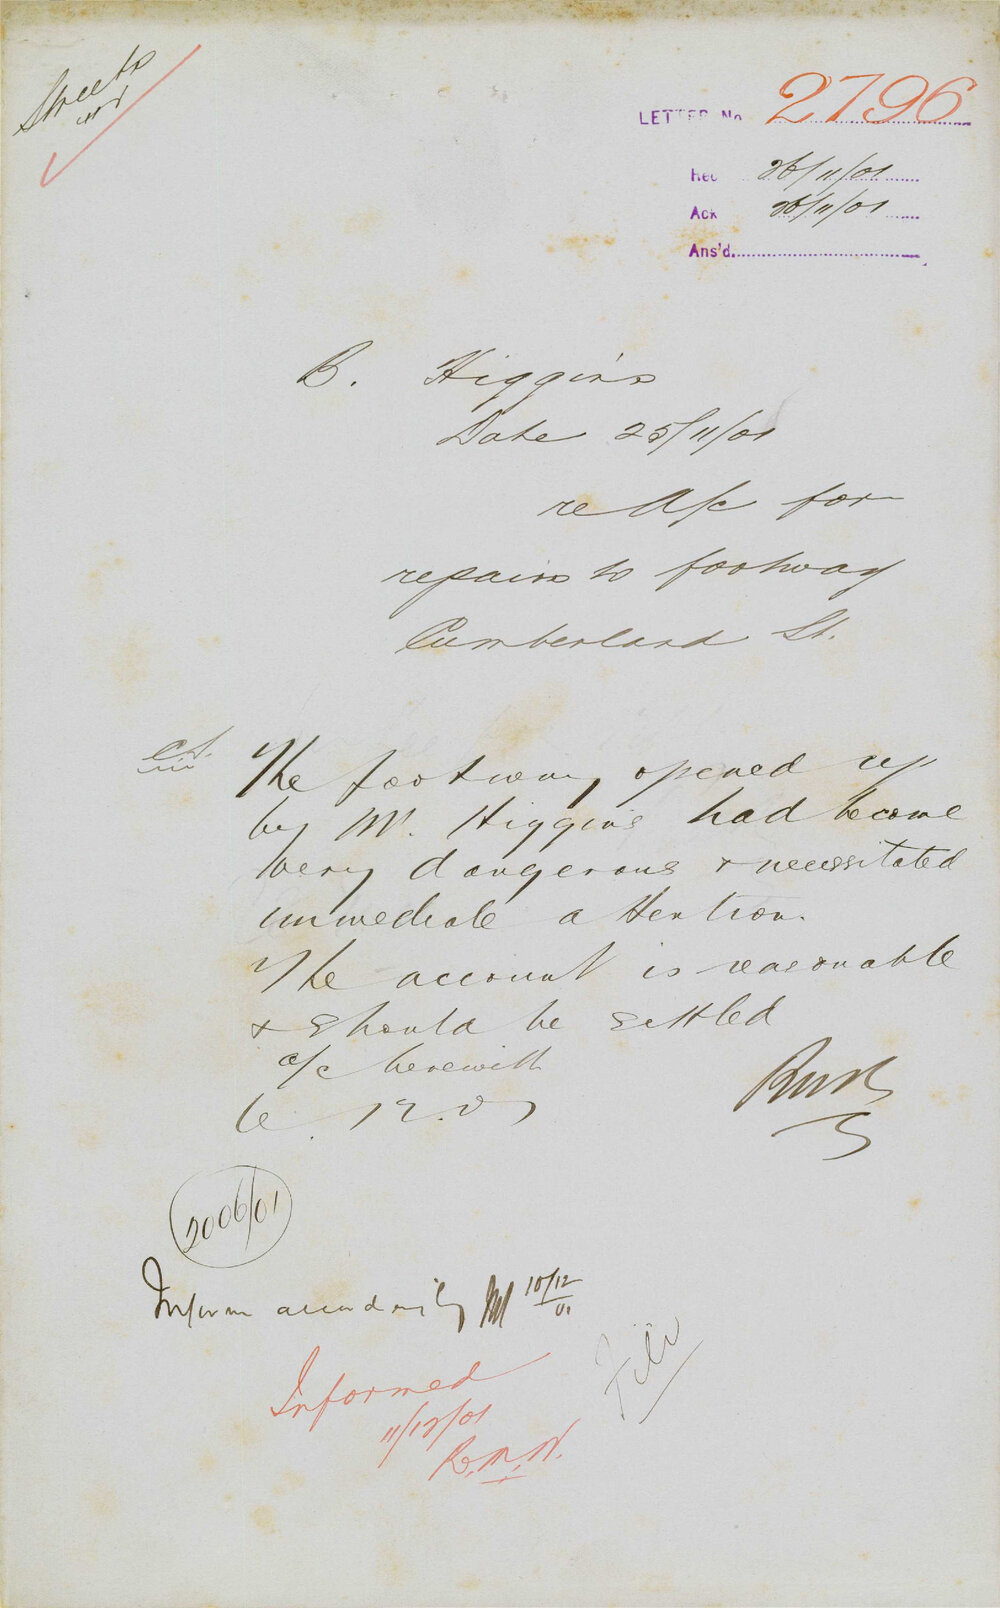 Streets
LETTER No 2796
Rec 26/11/01
Ack 26/11/01
Ans'd.
B. Higgins
Date 25/11/01
re A/c for
repairs to footway
Cumberland St.
C.S.
The footway opened up
by Mr. Higgins had become
very dangerous & necessitated
immediate attention.
The account is reasonable
& should be settled
a/c herewith
2006/01
Inform accordingly 10/12/01
File
Informed
11/12/01